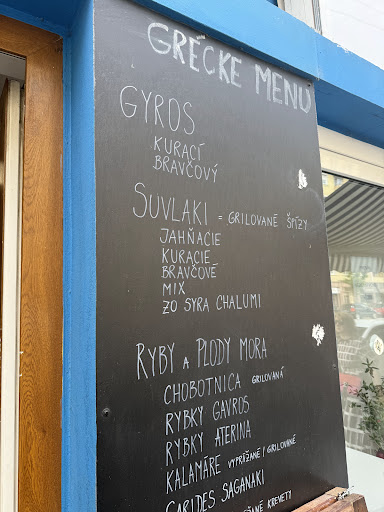 GRÉCKE MENU
GYROS
KURACÍ
BRAVČOVÝ
SUVLAKI = GRILOVANÉ ŠPÍZY
JAHŇACIE
KURACIE
BRAVČOVÉ
MIX
ZO SYRA CHALUMI
RYBY a PLODY MORA
CHOBOTNICA GRILOVANÁ
RYBKY GAVROS
RYBKY ATERINA
KALAMÁRE VYPRÁŽANÉ / GRILOVANÉ
GARIDES SAGANAKI
KREVETY